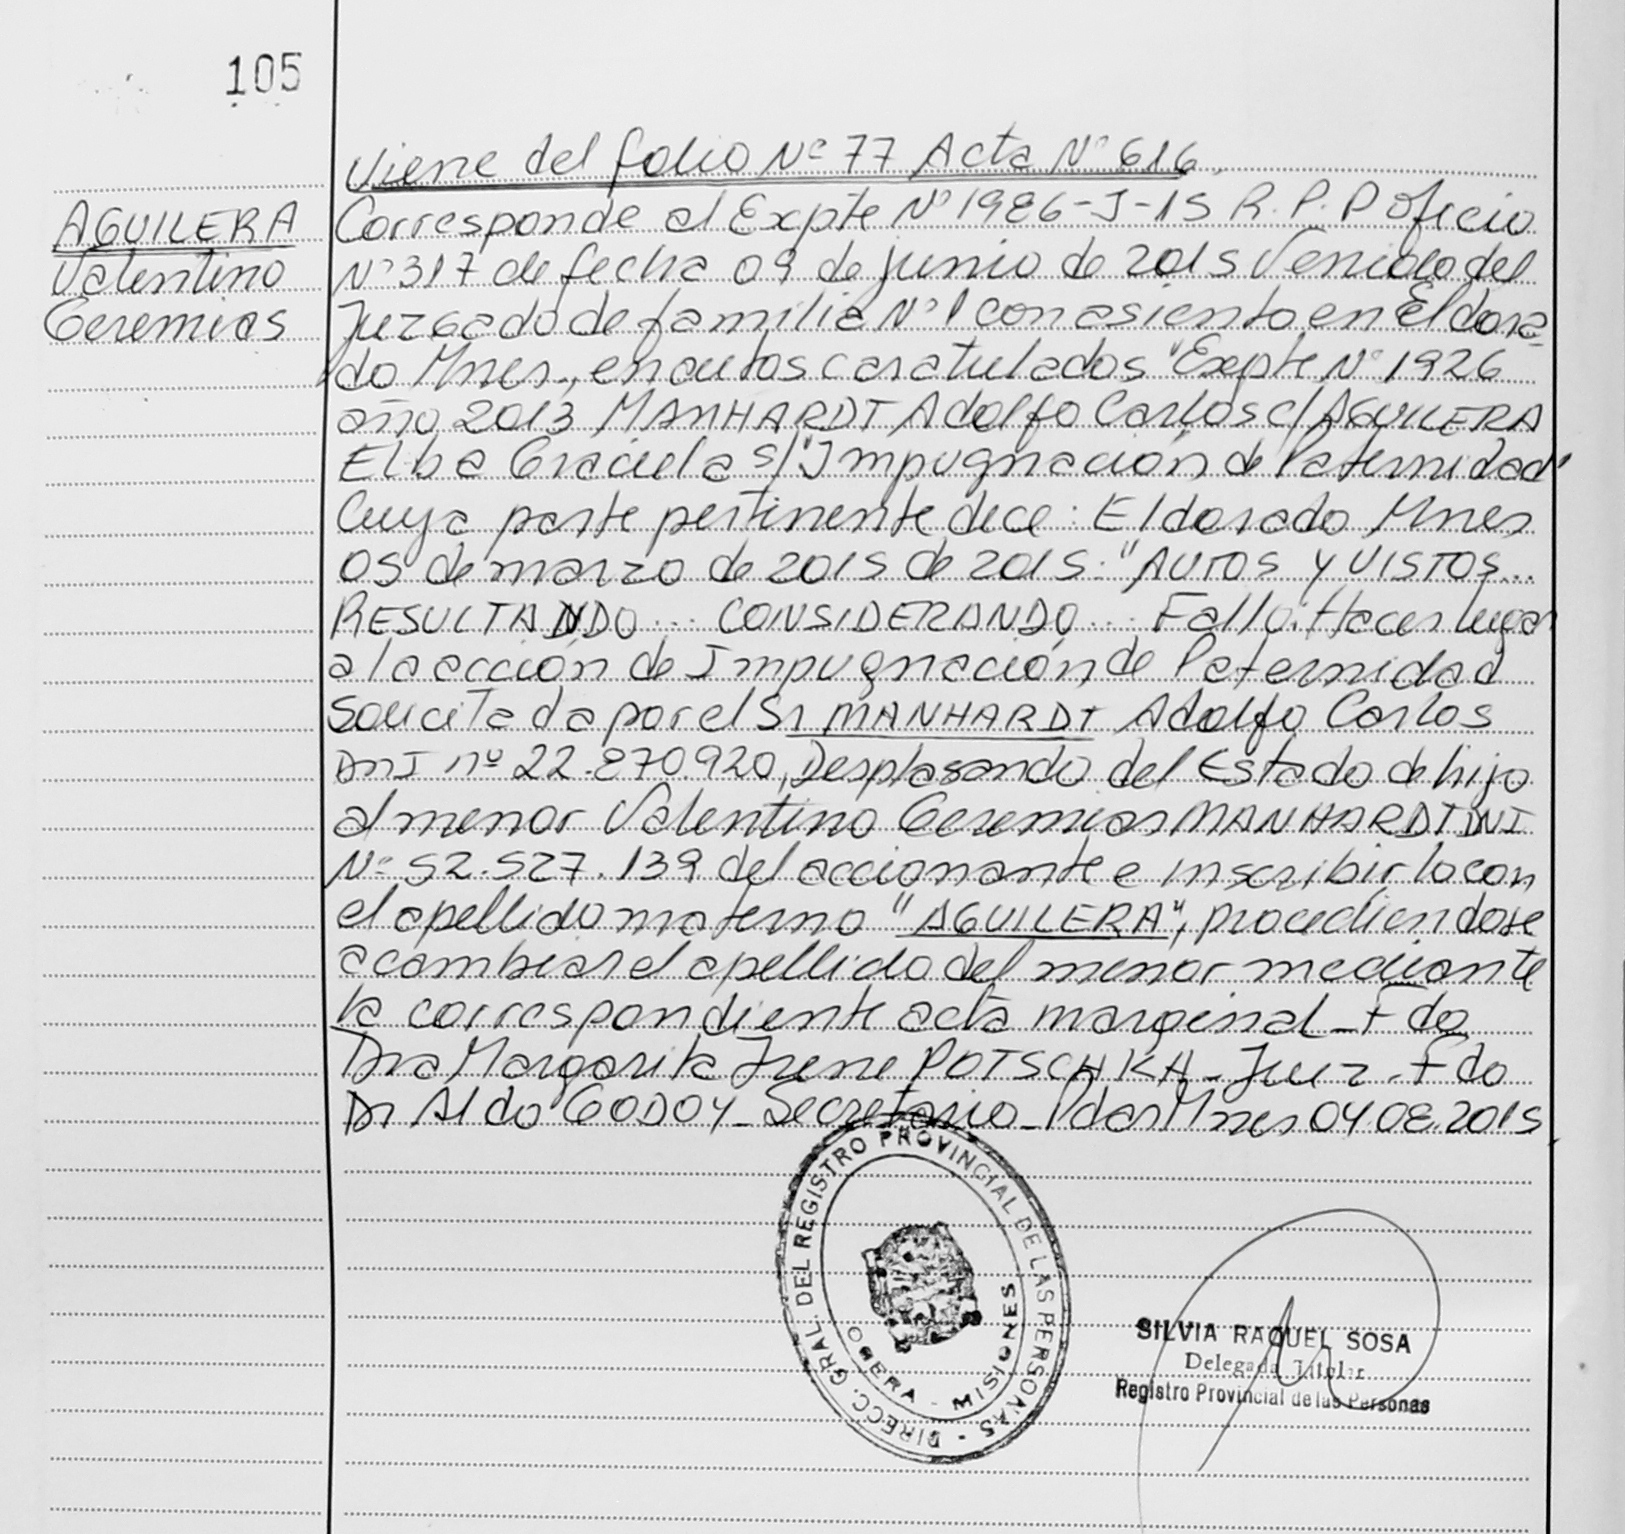 105
Viene del folio Nº 77 Acta Nº 616
AGUILERA
Valentino
Geremias
Corresponde al Expte Nº 1986-J-15 R.P.P Oficio
Nº 317 de fecha 09 de junio de 2015 Venido del
Juzgado de familia Nº 1 con asiento en Eldora
do Mnes., en autos caratulados "Expte Nº 1926
año 2013 MANHARDT Adolfo Carlos c/ AGUILERA
Elba Graciela s/"Impugnación de Paternidad"
Cuya parte pertinente dice: Eldorado Mnes
05 de marzo de 2015 de 2015: "AUTOS Y VISTOS...
RESULTANDO... CONSIDERANDO... Fallo: Hacer lugar
a la acción de Impugnación de Paternidad
Solicitada por el Sr MANHARDT Adolfo Carlos
DNI nº 22.870.920, Desplasando del Estado de hijo
al menor Valentino Geremias MANHARDT DNI
Nº 52.527.139 del accionante e inscribirlo con
el apellido materno "AGUILERA", procediendose
a cambiar el apellido del menor mediante
la correspondiente acta marginal_Fdo
Dra Margarita Irene POTSCHKA_Juez_Fdo
Dr Aldo GODOY_Secretario_Pdas Mnes 04.08.2015
DIRECC. GRAL. DEL REGISTRO PROVINCIAL DE LAS PERSONAS -
OBERA - MISIONES
SILVIA RAQUEL SOSA
Delegada Titular
Registro Provincial de las Personas